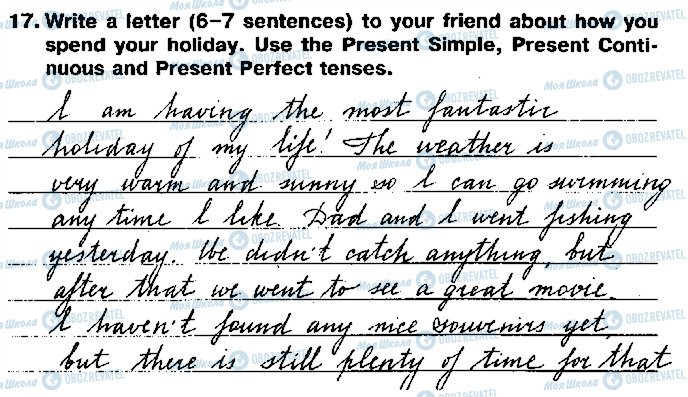 17. Write a letter (6–7 sentences) to your friend about how you
spend your holiday. Use the Present Simple, Present Conti-
nuous and Present Perfect tenses.
I am having the most fantastic
holiday of my life! The weather is
very warm and sunny so I can go swimming
any time I like. Dad and I went fishing
yesterday. We didn't catch anything, but
after that we went to see a great movie.
I haven't found any nice souvenirs yet,
but there is still plenty of time for that